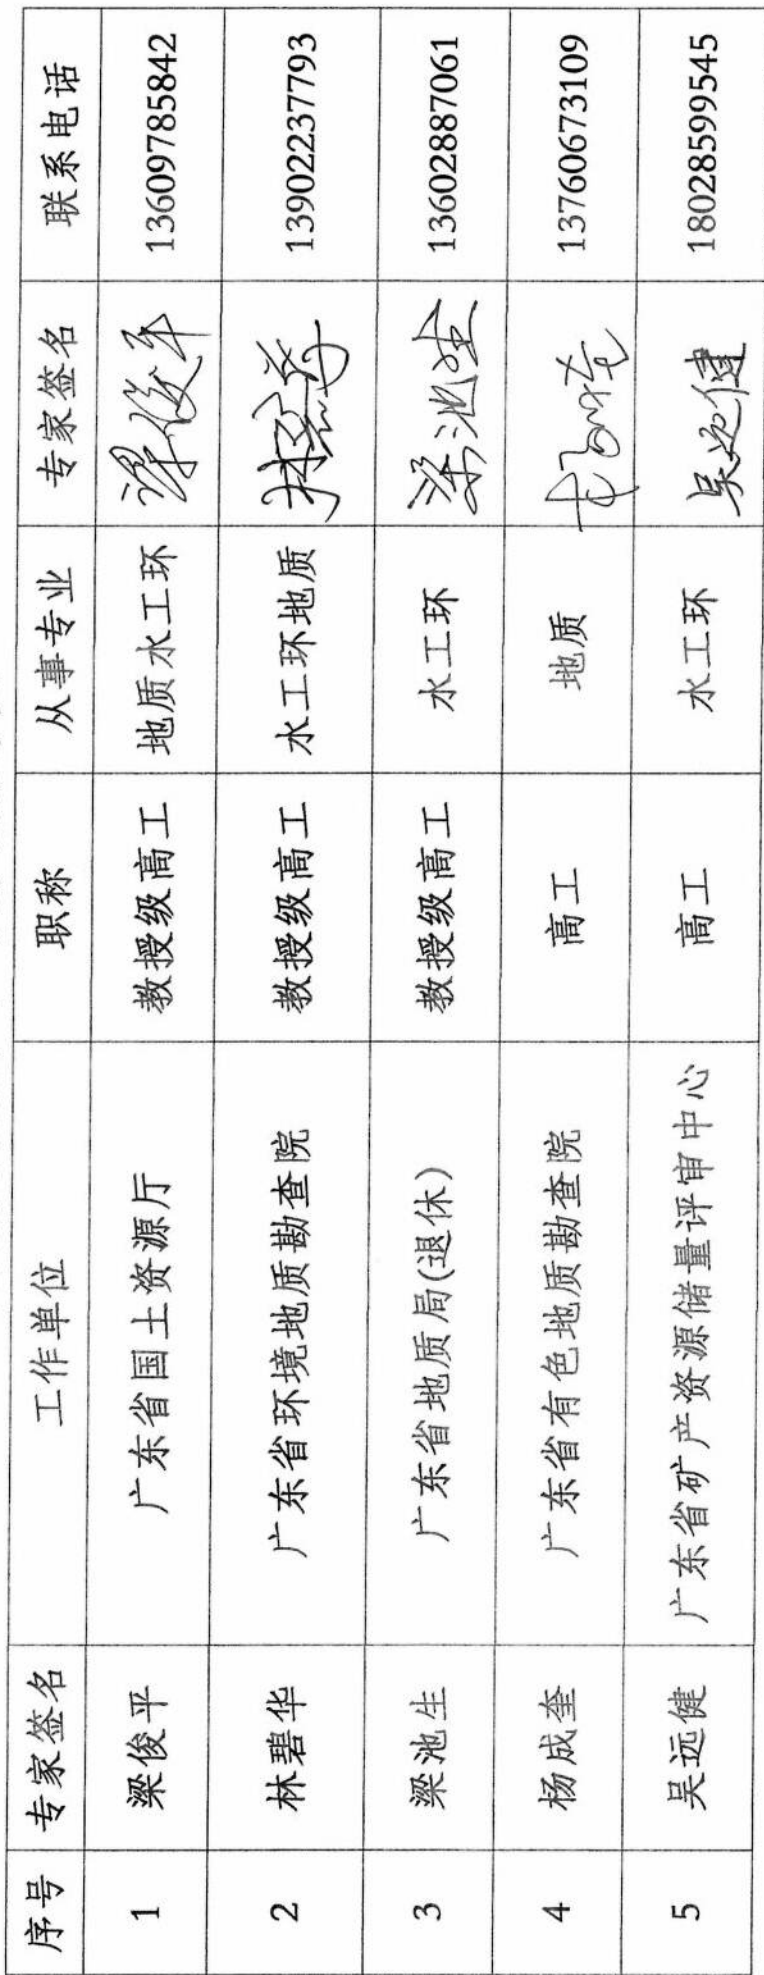 序号 专家签名 工作单位 职称 从事专业 专家签名 联系电话
1 梁俊平 广东省国土资源厅 教授级高工 地质水工环 梁俊平 13609785842
2 林碧华 广东省环境地质勘查院 教授级高工 水工环地质 林碧华 13902237793
3 梁池生 广东省地质局(退休) 教授级高工 水工环 梁池生 13602887061
4 杨成奎 广东省有色地质勘查院 高工 地质 13760673109
5 吴远健 广东省矿产资源储量评审中心 高工 水工环 吴远健 18028599545